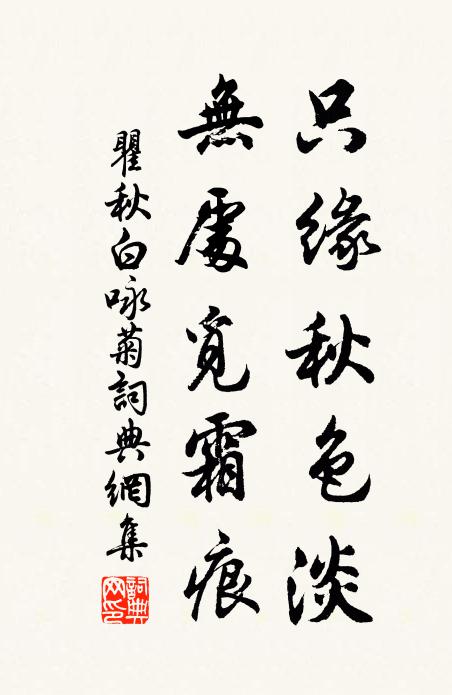 只缘秋色淡
無處覓霜痕
瞿秋白咏菊詞典網集
詞典網印